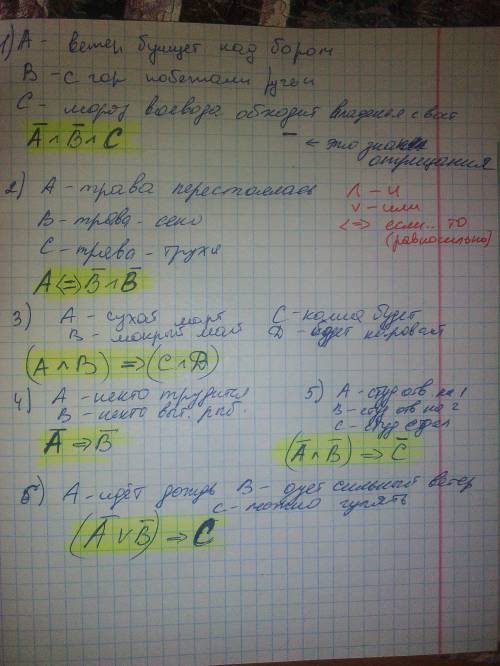 1) A - ветер бушует над бором
B - с гор побежали ручьи
C - мороз воевода обходит владенья свои
Ā ∧ B̄ ∧ C
— ← это знак отрицания
2) A - трава перестоялась
B - трава - сено
C - трава - труха
A <=> B̄ ∧ B̄
∧ - и
∨ - или
<=> если.. то
(равносильно)
3) A - сухой март
B - мокрый май
C - каша будет
D - будет каравай
(A ∧ B) => (C ∧ D)
4) A - некто трудится
B - некто выт. рыб.
Ā => B̄
5) A - студ отв. на 1
B - студ отв на 2
C - студ сдал
(Ā ∧ B̄) => C̄
6) A - идёт дождь B - дует сильный ветер
C - можно гулять
(Ā ∨ B̄) => C